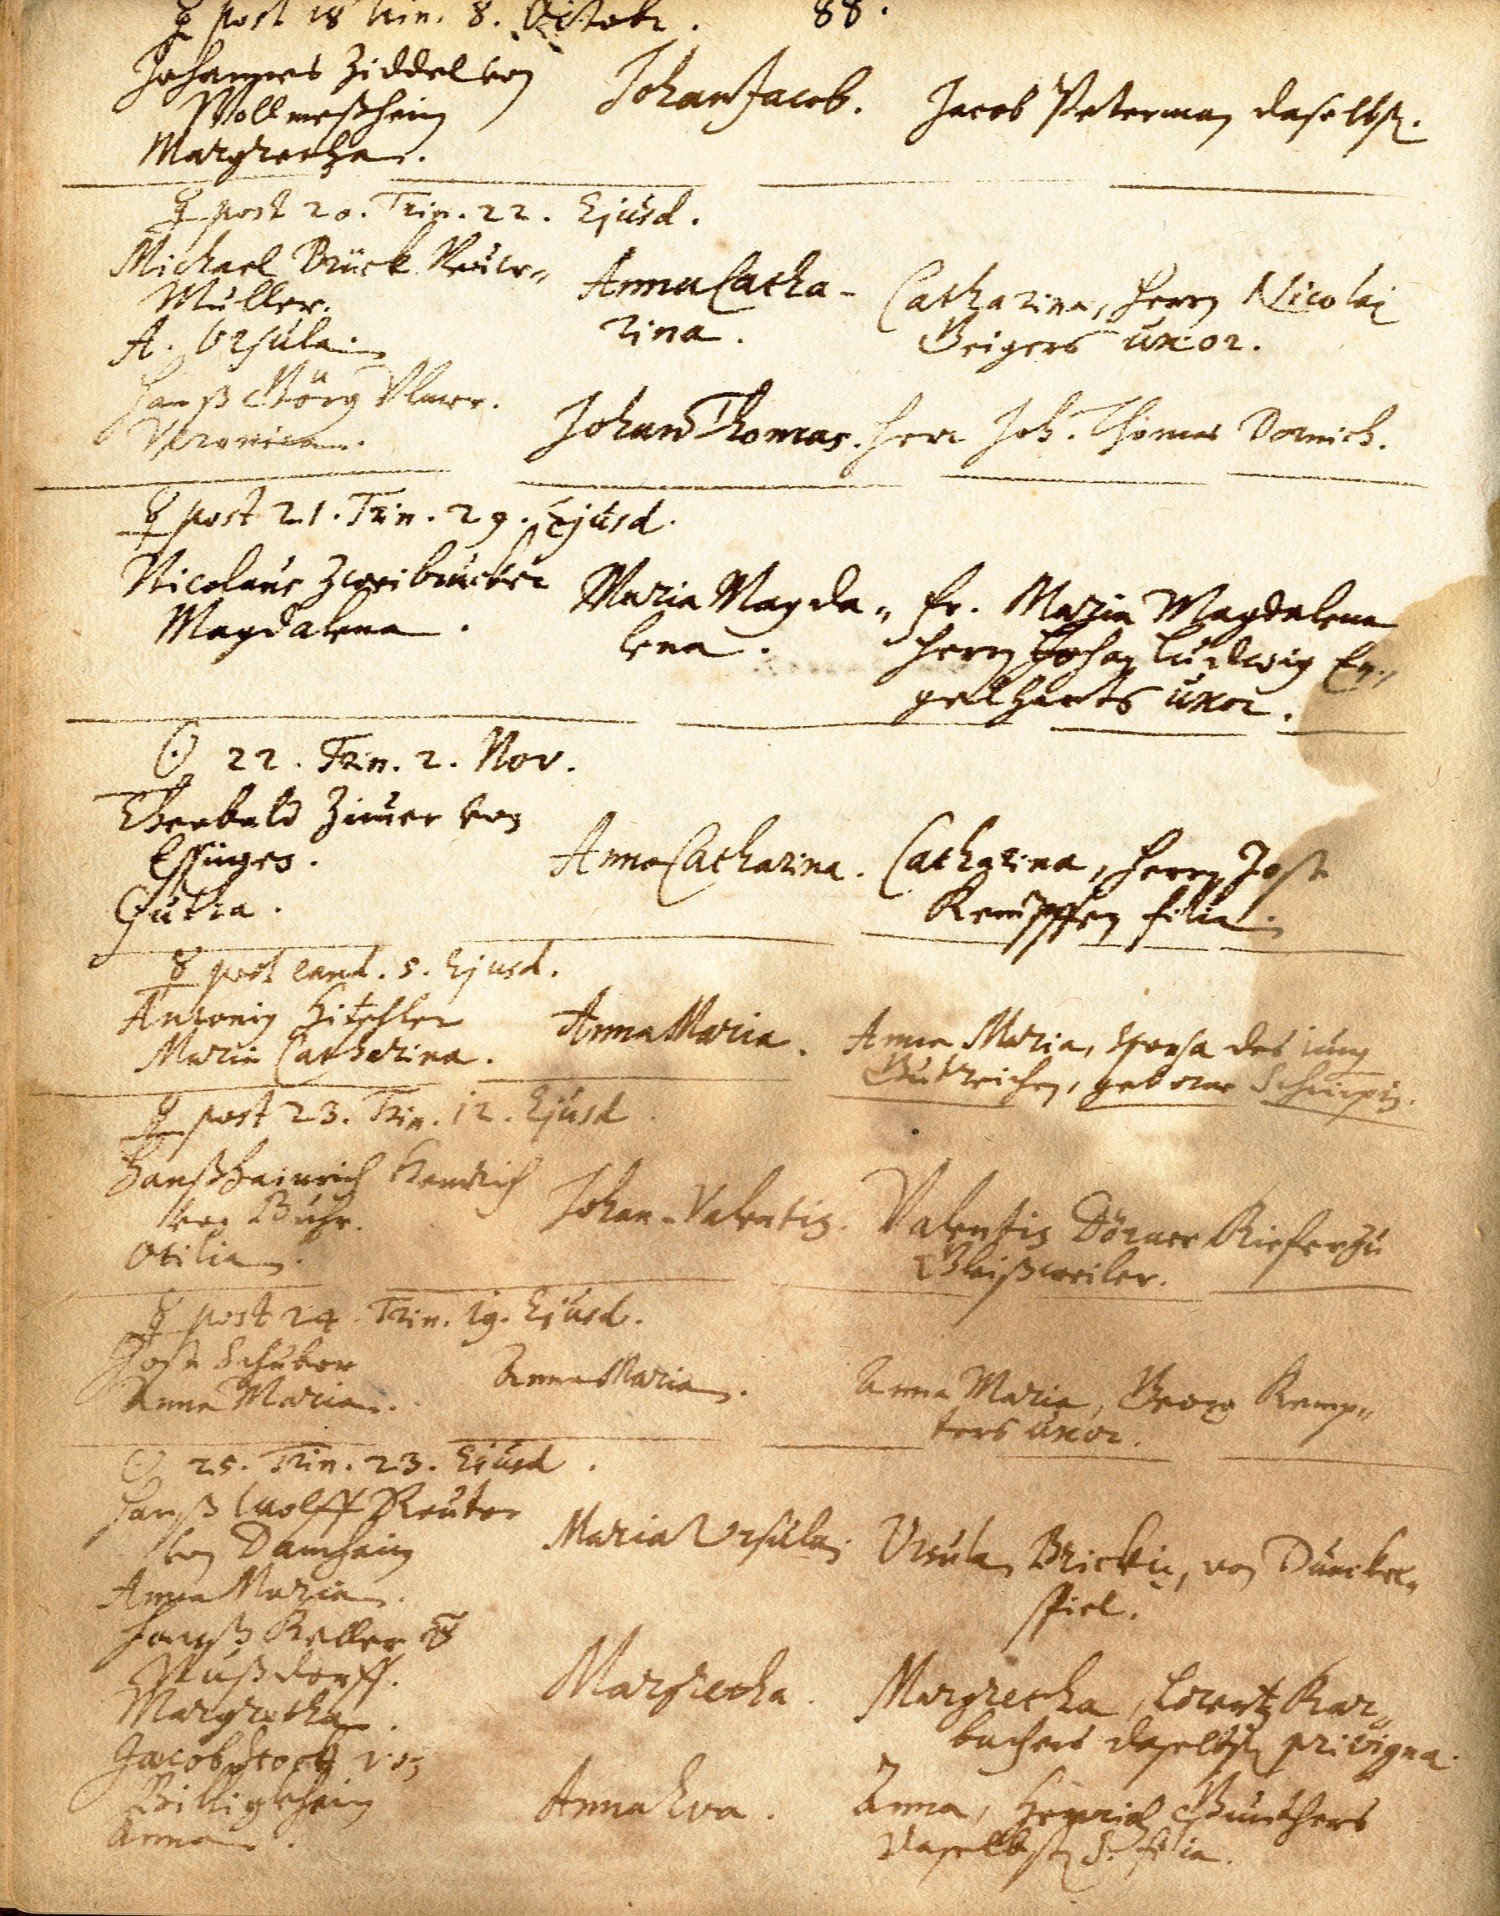 ☿ post 18 Trin. 8. Octobr. 88.
Johannes Ziddel von
Wollmeßheim
Margretha.
Johan Jacob.
Jacob Peterman daselbst.
☿ post 20. Trin. 22. Ejusd.
Michael Brück
Müller.
A. Ursula.
Anna Catha-
rina.
Catharina, Herrn Nicolai
Geigers uxor.
Hanß Görg Ulmer.
Veronica.
Johan Thomas.
Herr Joh. Thomas Dornich.
☿ post 21. Trin. 29. Ejusd.
Nicolaus Zweibrucker
Magdalena.
Maria Magda-
lena.
Fr. Maria Magdalena
Herrn Johan Ludwig En-
gelharts uxor.
☉ 22. Trin. 2. Nov.
Theobald Zimer von
Essingen.
Gutta.
Anna Catharina.
Catharina, Herrn Jost
Kempffen filia.
☿ post eand. 5. Ejusd.
Antonij Hitschler
Maria Catharina.
Anna Maria.
Anna Maria, sponsa des jung
geborne
☿ post 23. Trin. 12. Ejusd.
Hanß Heinrich
von
Otilia.
Johan-Valentin.
Valentin Dörner Kiefer zu
Gleißweiler.
☿ post 24. Trin. 19. Ejusd.
Jost Schuber
Anna Maria.
Anna Maria.
Anna Maria, Georg Kemp-
ters uxor.
☉ 25. Trin. 23. Ejusd.
Hanß Wolff Reuter
von Damheim
Anna Maria.
Maria Ursula.
Ursula Brickin, von Dünckel-
spiel.
Hanß Keller
Nußdorff.
Margretha.
Margretha.
Margretha, Lorentz Kar-
bachers daselbst privigna.
Jacob von
Billigheim
Anna.
Anna Eva.
Anna, Henrich Günthers
daselbst filia.